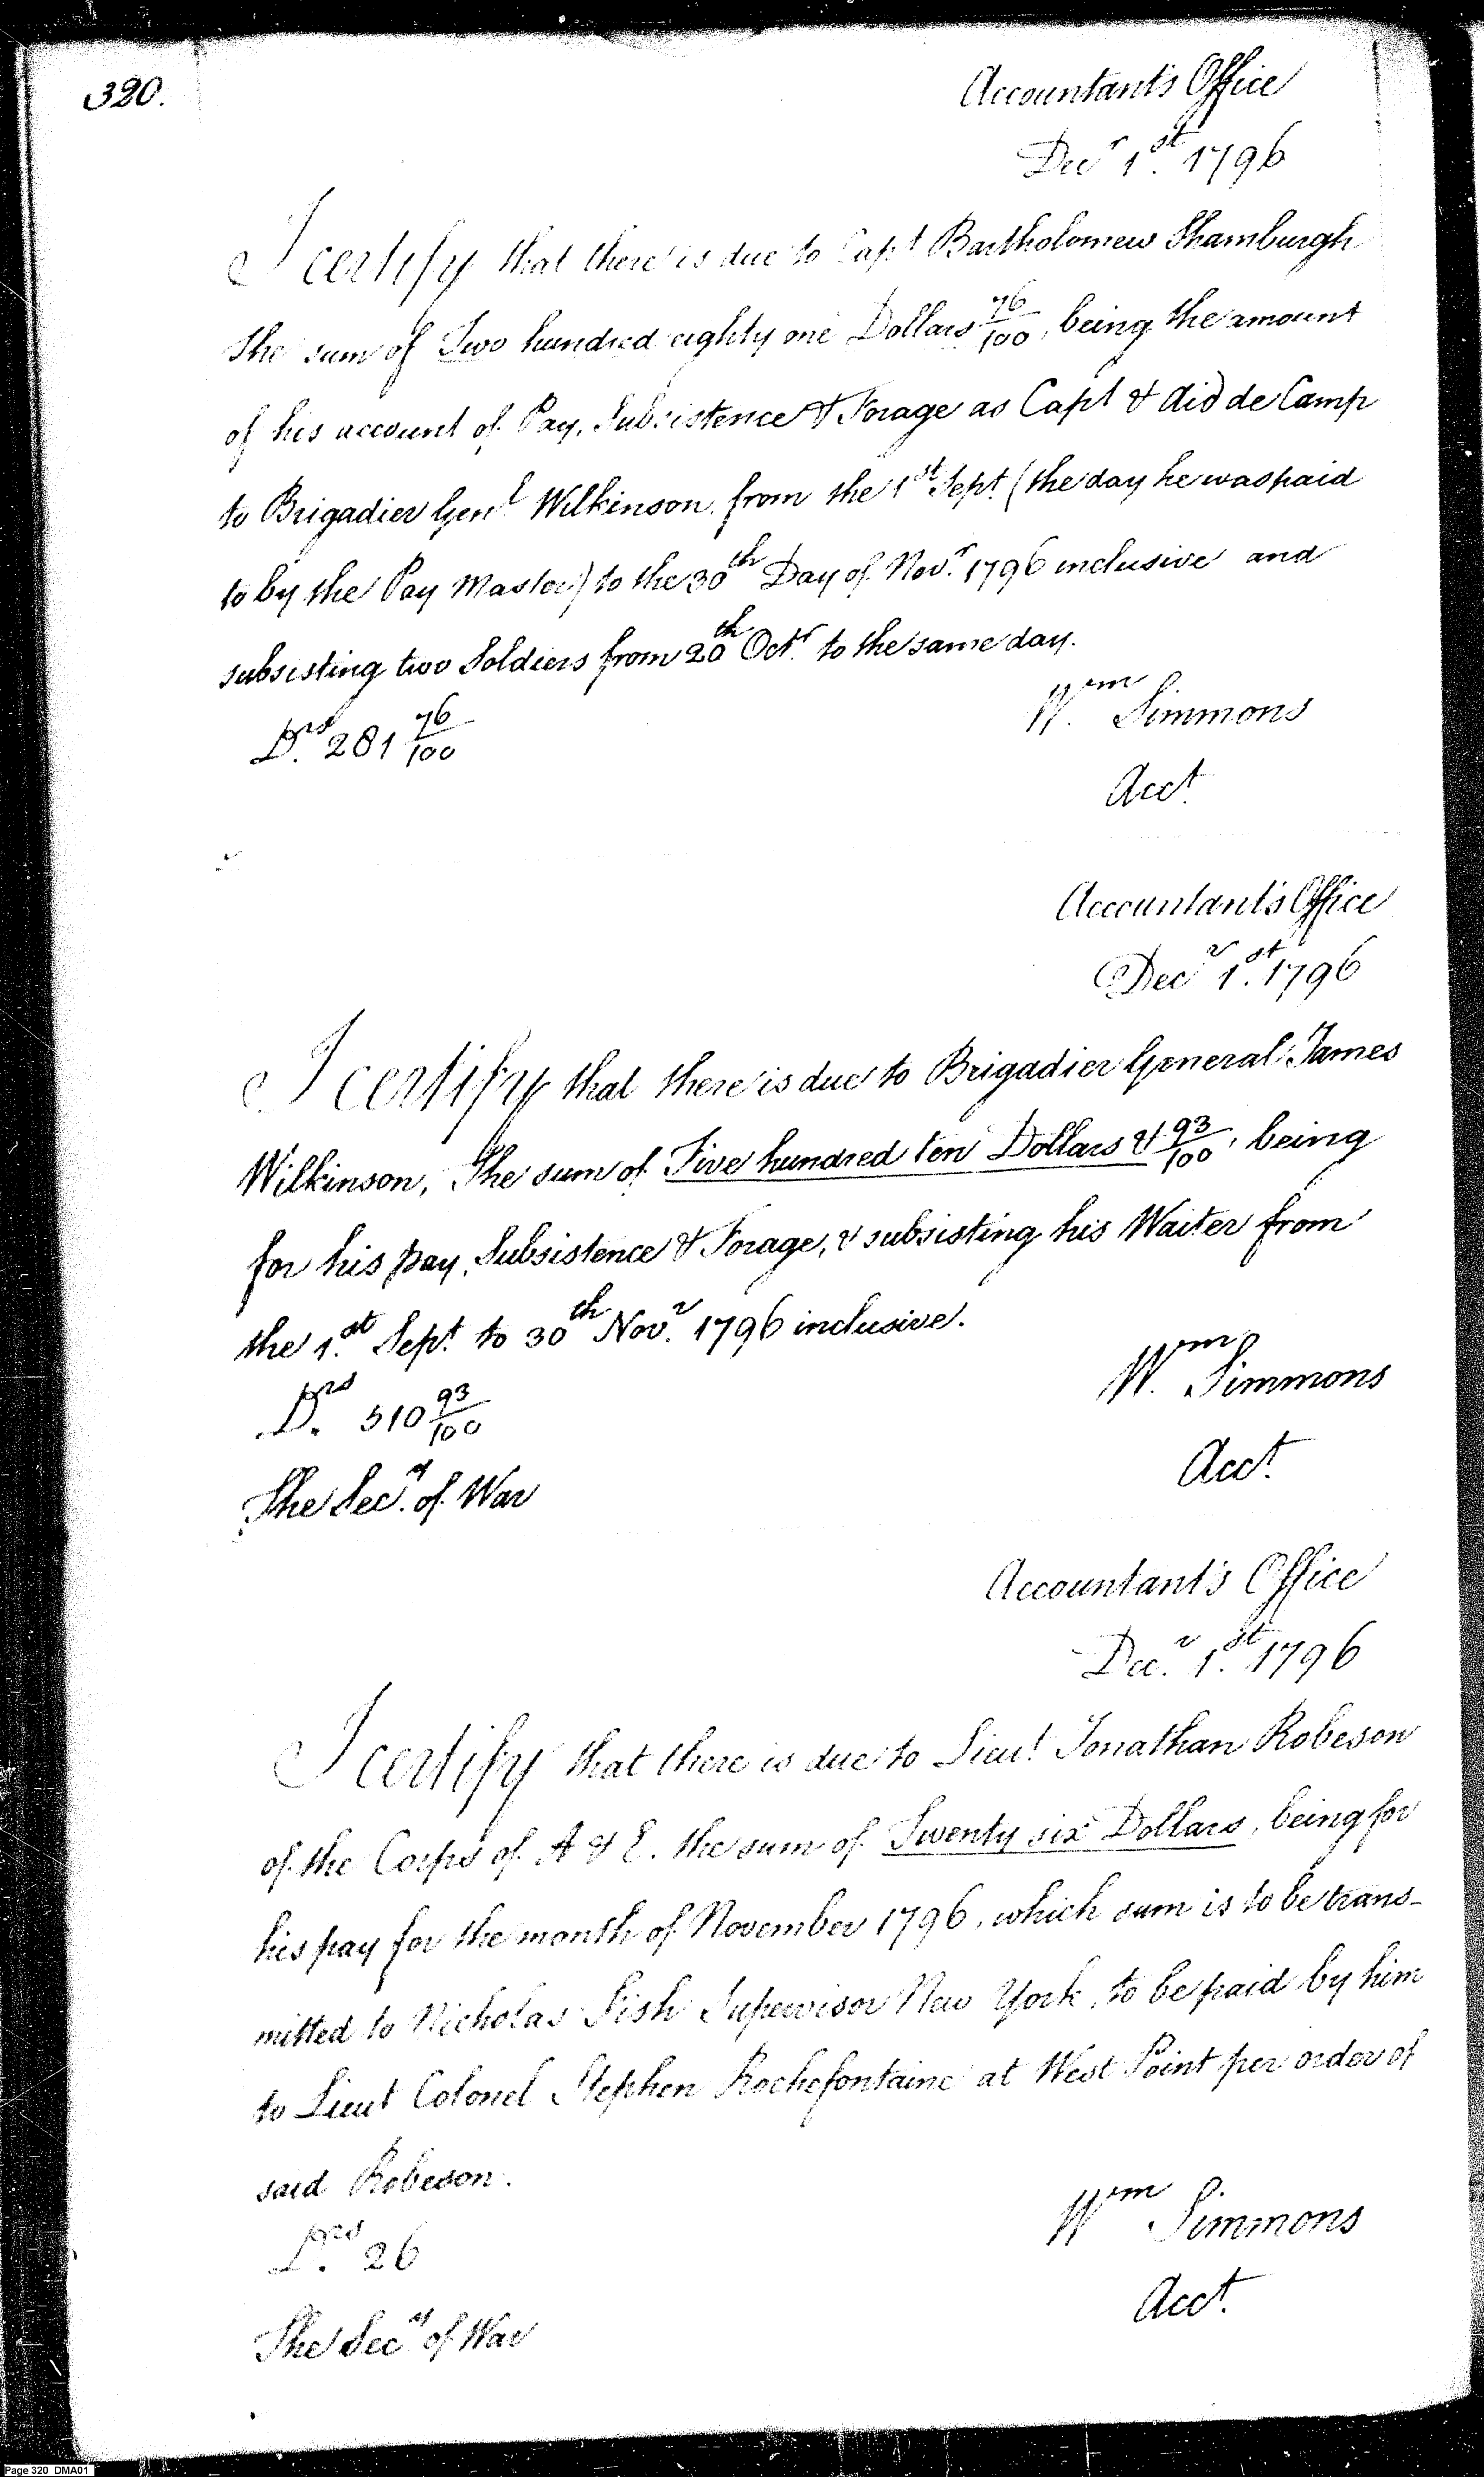 320.
Accountant's Office
Decr 1st. 1796
I certify that there is due to Capt Bartholomew Shamburgh
the sum of Two hundred eighty one Dollars 76/100, being the amount
of his account of Pay, Subsistence & Forage as Capt & Aid de Camp
to Brigadier Genl Wilkinson, from the 1st Sept. (the day he was paid
to by the Pay Master) to the 30th Day of Novr. 1796 inclusive and
subsisting two Soldiers from 20th Octr. to the same day.
Drs. 281 76/100
Wm. Simmons
Acct.
Accountant's Office
Decr 1st. 1796
I certify that there is due to Brigadier General James
Wilkinson, The sum of Five hundred ten Dollars & 93/100, being
for his pay, Subsistence & Forage, & subsisting his Waiter from
the 1st. Sept. to 30th Novr. 1796 inclusive.
Drs. 510 93/100
Wm. Simmons
Acct.
The Secy. of War
Accountant's Office
Decr. 1st. 1796
I certify that there is due to Lieut Jonathan Robeson
of the Corps of A & E. the sum of Twenty six Dollars, being for
his pay for the month of November 1796, which sum is to be trans-
mitted to Nicholas Fish Supervisor New York, to be paid by him
to Lieut Colonel Stephen Rochefontaine at West Point per order of
said Robeson.
Drs. 26
Wm Simmons
Acct.
The Secy of War
Page 320 DMA01